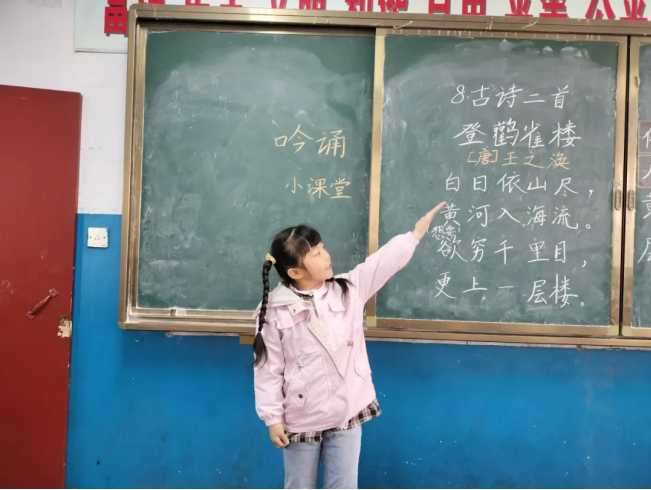 吟诵
小课堂
8.古诗二首
登鹳雀楼
[唐]王之涣
白日依山尽，
黄河入海流。
想要
欲穷千里目，
更上一层楼。